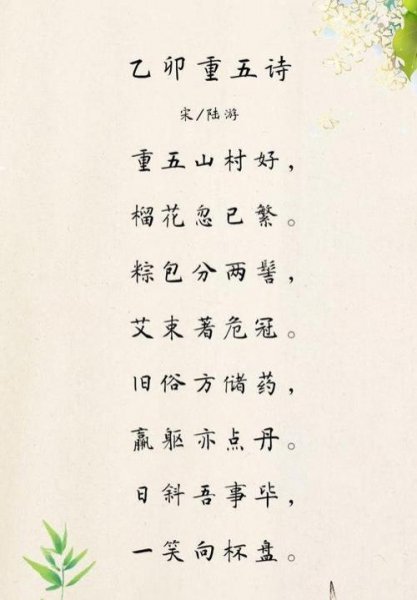 乙卯重五诗
宋/陆游
重五山村好，
榴花忽已繁。
粽包分两髻，
艾束著危冠。
旧俗方储药，
羸躯亦点丹。
日斜吾事毕，
一笑向杯盘。